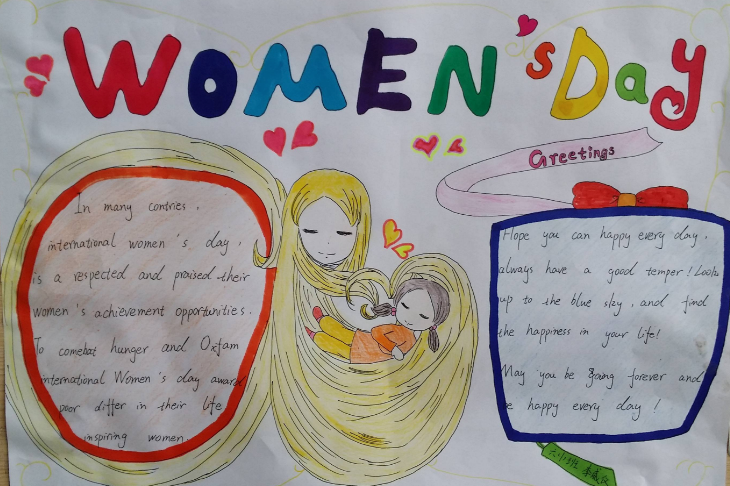 WOMEN'S DAY
Greetings
In many contries,
international women's day,
is a respected and praised their
women's achievement opportunities.
To comebat hunger and Oxfam
international Women's day award
poor differ in their life
inspiring women.
Hope you can happy every day,
always have a good temper! Look
up to the blue sky, and find
the happiness in your life!
May you be going forever and
be happy every day!